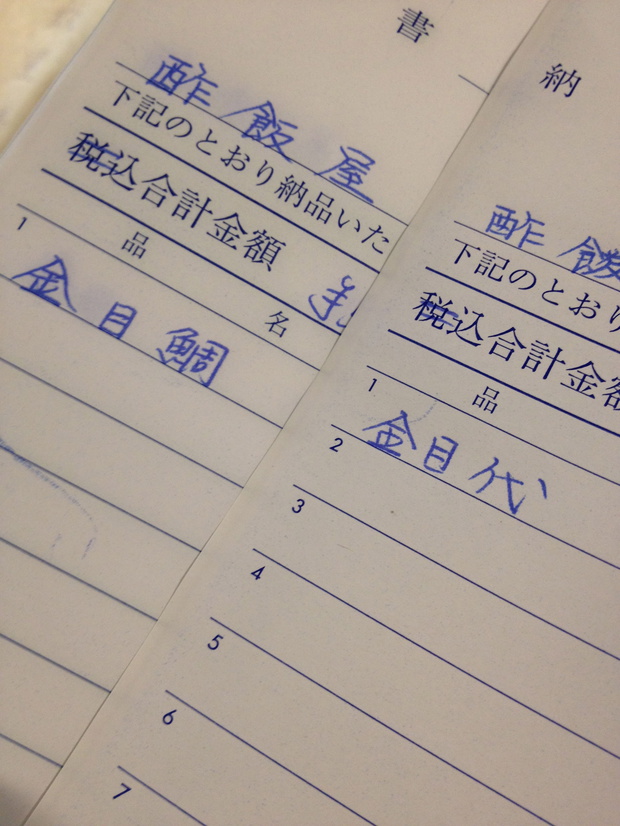 書
酢飯屋
下記のとおり納品いた
税込合計金額
1
品名
金目鯛
納
酢飯
下記のとおり
税込合計金額
1 品
金目代
2
3
4
5
6
7